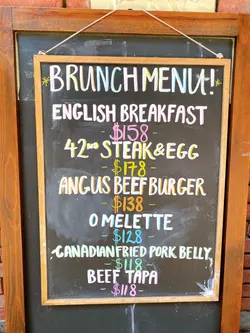 BRUNCH MENU!
ENGLISH BREAKFAST
-$158-
42ND STEAK & EGG
-$178-
ANGUS BEEF BURGER
-$138
OMELETTE
-$128
CANADIAN FRIED PORK BELLY
-$118-
BEEF TAPA
-$118-